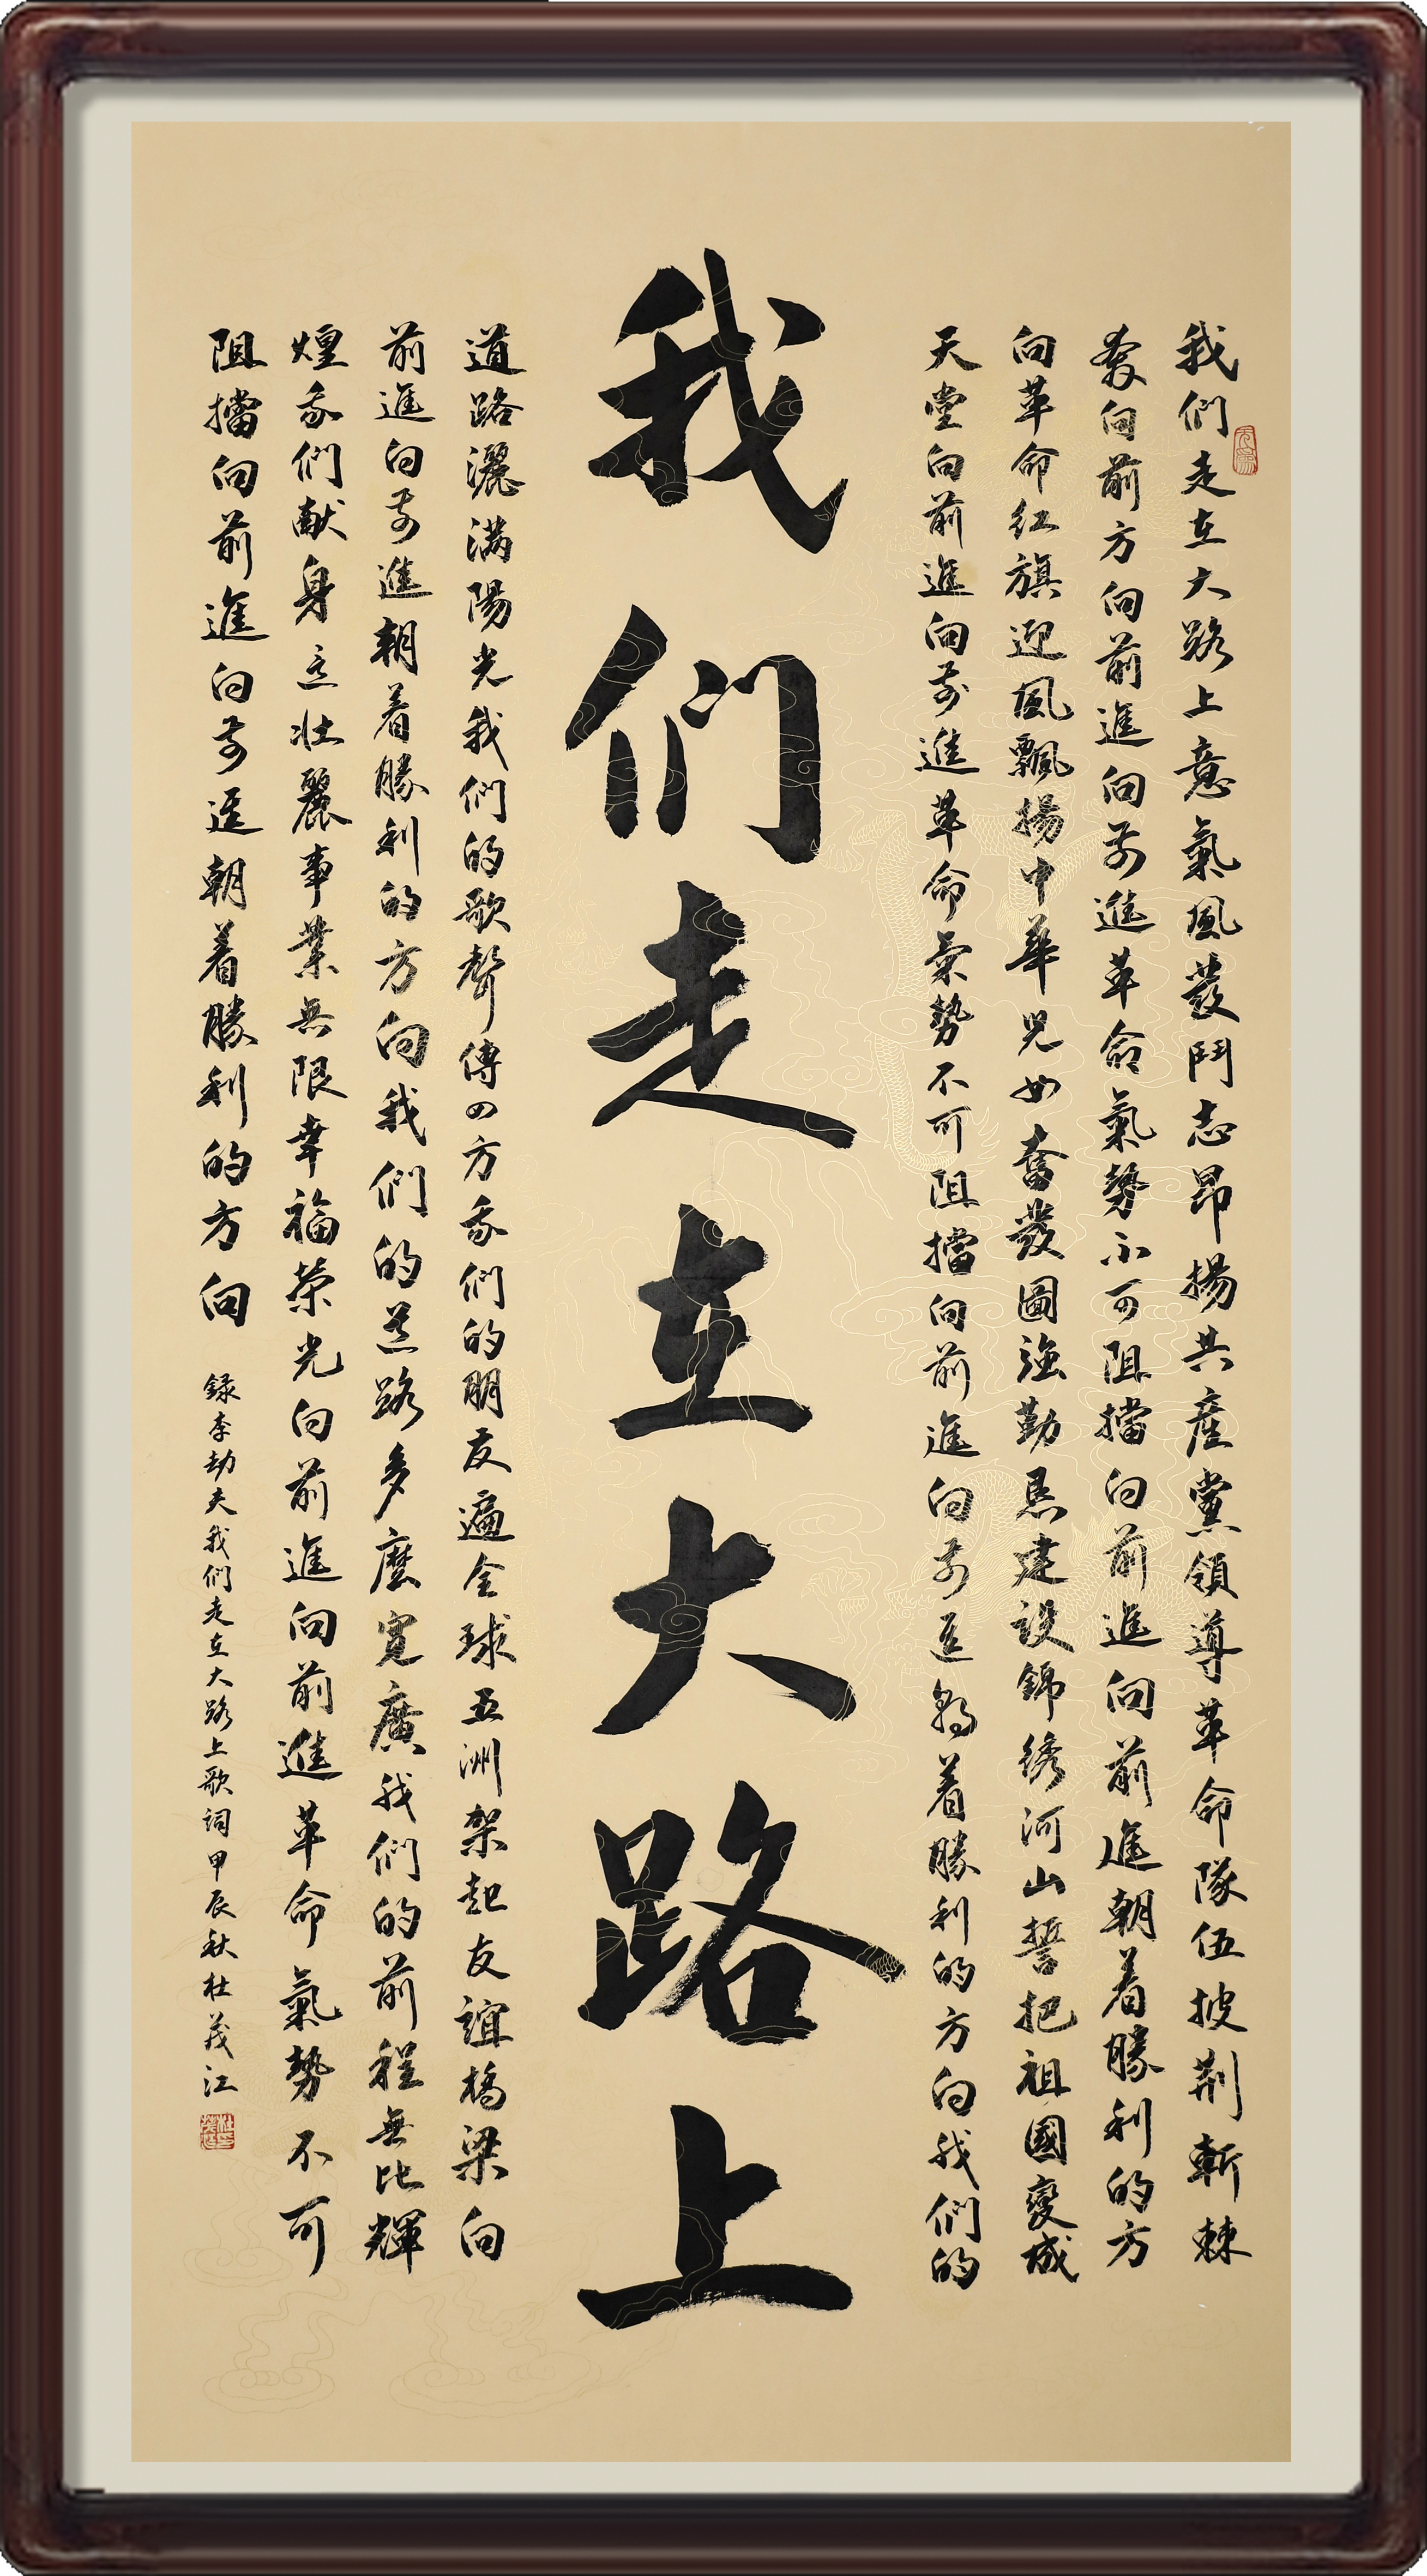 我們走在大路上意氣風發鬥志昂揚共產黨領導革命隊伍披荆斬棘
奔向前方向前進向前進革命氣勢不可阻擋向前進向前進朝着勝利的方
向革命紅旗迎風飄揚中華兒女奮發圖強勤恳建設錦绣河山誓把祖國變成
天堂向前進向前進革命氣勢不可阻擋向前進向前進朝着勝利的方向我們的
我們走在大路上
道路灑滿陽光我們的歌聲傳四方我們的朋友遍全球五洲架起友誼橋梁向
前進向前進朝着勝利的方向我們的道路多麼寬廣我們的前程無比輝
煌我們献身這壯麗事業無限幸福榮光向前進向前進革命氣勢不可
阻擋向前進向前進朝着勝利的方向
錄李劫夫我們走在大路上歌詞甲辰秋杜茂江